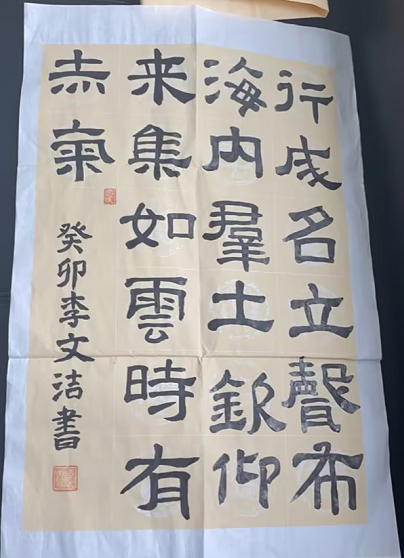 行成名立聲布
海内羣士欽仰
来集如雲時有
赤氣
癸卯李文洁書